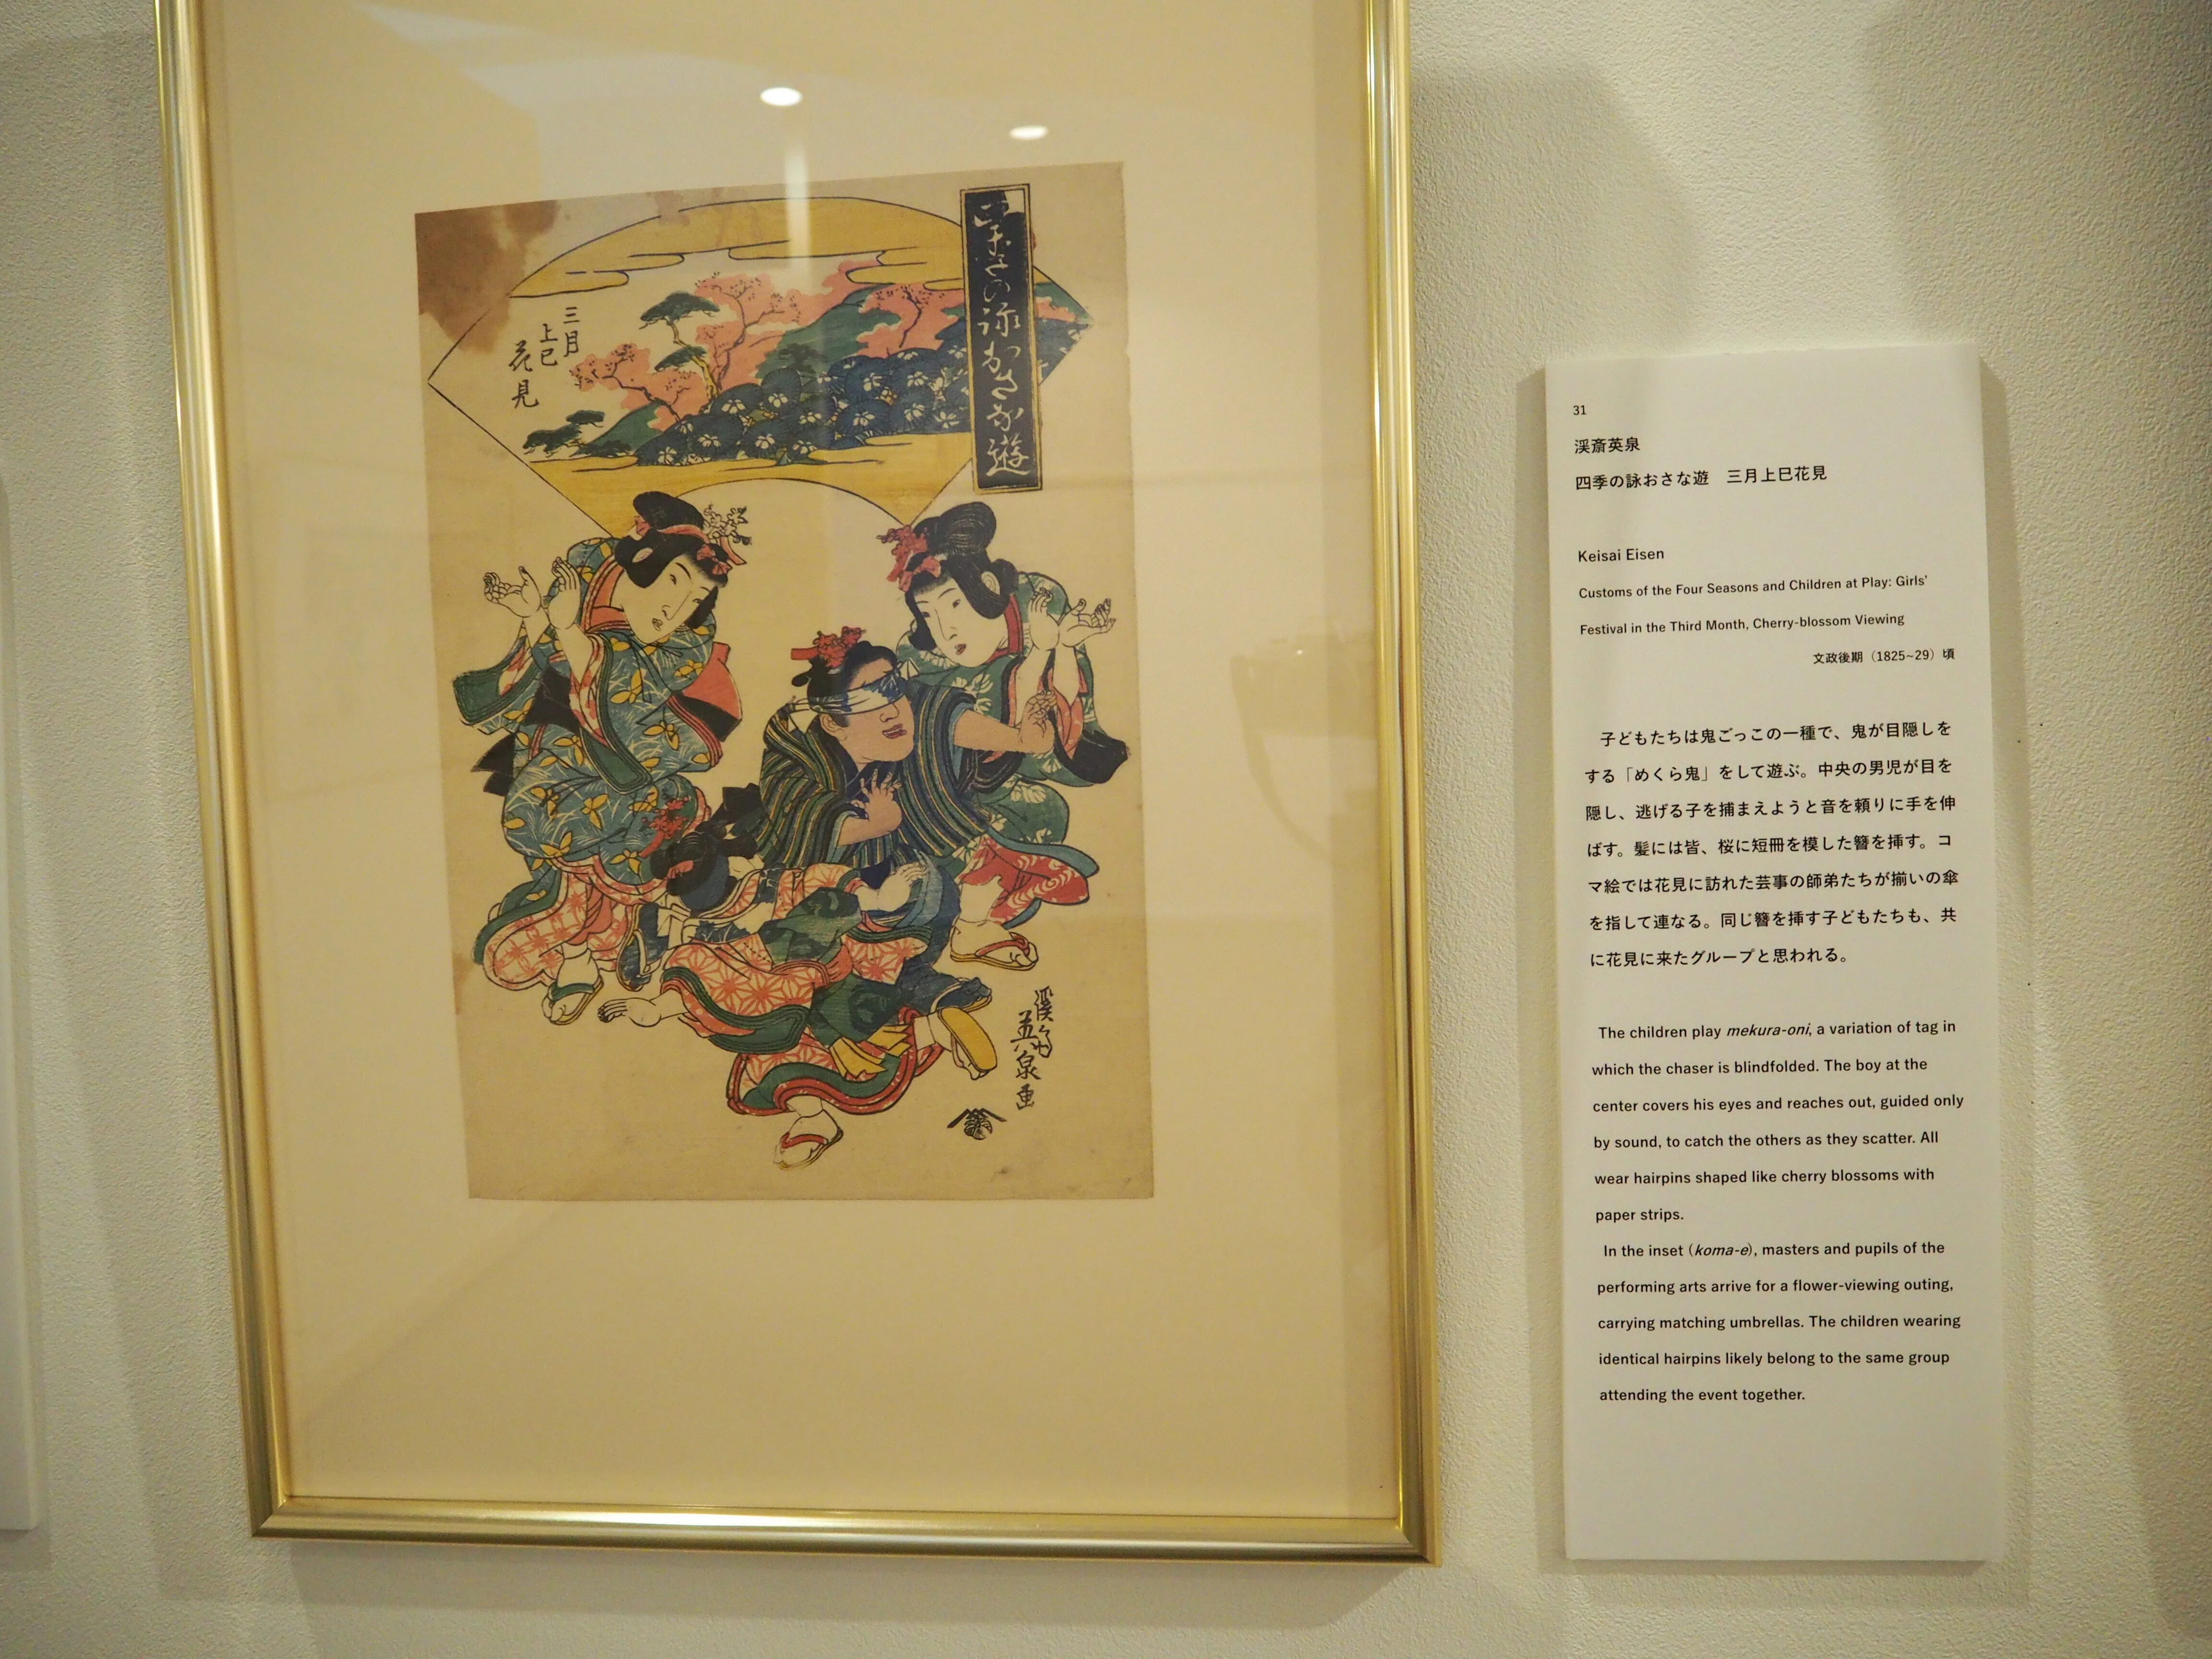 四季の詠おさな遊
三月
上巳
花見
渓斎
英泉画
31
渓斎英泉
四季の詠おさな遊　三月上巳花見
Keisai Eisen
Customs of the Four Seasons and Children at Play: Girls'
Festival in the Third Month, Cherry-blossom Viewing
文政後期（1825~29）頃
子どもたちは鬼ごっこの一種で、鬼が目隠しを
する「めくら鬼」をして遊ぶ。中央の男児が目を
隠し、逃げる子を捕まえようと音を頼りに手を伸
ばす。髪には皆、桜に短冊を模した簪を挿す。コ
マ絵では花見に訪れた芸事の師弟たちが揃いの傘
を指して連なる。同じ簪を挿す子どもたちも、共
に花見に来たグループと思われる。
The children play mekura-oni, a variation of tag in
which the chaser is blindfolded. The boy at the
center covers his eyes and reaches out, guided only
by sound, to catch the others as they scatter. All
wear hairpins shaped like cherry blossoms with
paper strips.
In the inset (koma-e), masters and pupils of the
performing arts arrive for a flower-viewing outing,
carrying matching umbrellas. The children wearing
identical hairpins likely belong to the same group
attending the event together.